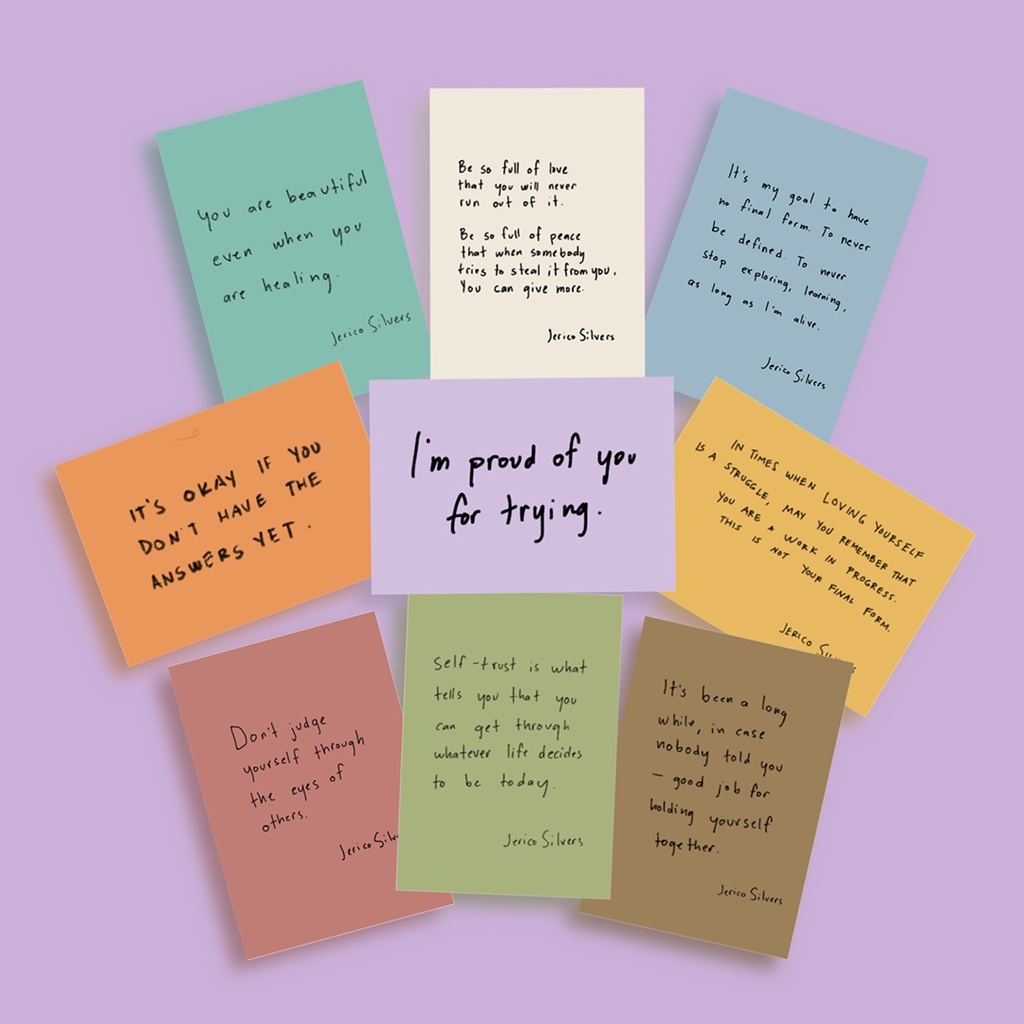 You are beautiful
even when you
are healing.
Jerico Silvers
Be so full of love
that you will never
run out of it.
Be so full of peace
that when somebody
tries to steal it from you,
You can give more.
Jerico Silvers
It's my goal to have
no final form. To never
be defined. To never
stop exploring, learning,
as long as I'm alive.
Jerico Silvers
IT'S OKAY IF YOU
DON'T HAVE THE
ANSWERS YET.
I'm proud of you
for trying.
IN TIMES WHEN LOVING YOURSELF
IS A STRUGGLE, MAY YOU REMEMBER THAT
YOU ARE A WORK IN PROGRESS.
THIS IS NOT YOUR FINAL FORM.
JERICO
Don't judge
yourself through
the eyes of
others.
Jerico
Self-trust is what
tells you that you
can get through
whatever life decides
to be today.
Jerico Silvers
It's been a long
while, in case
nobody told you
– good job for
holding yourself
together.
Jerico Silvers